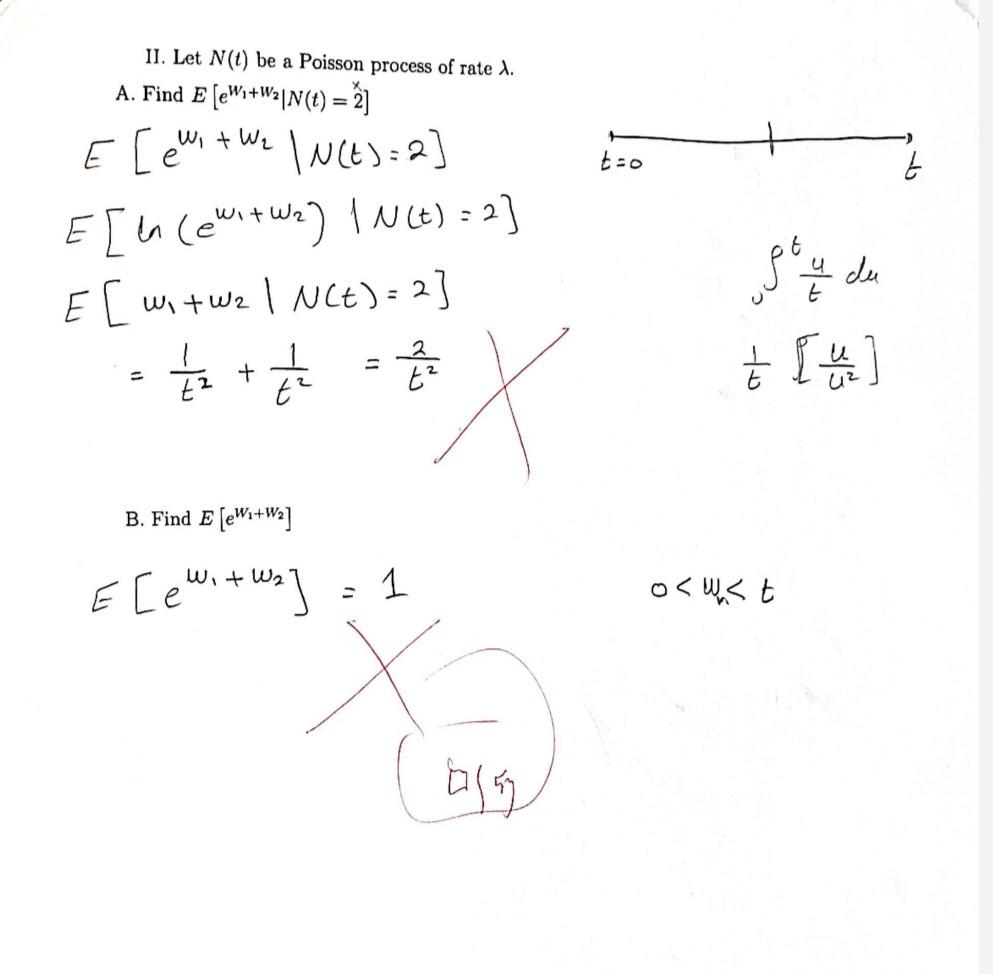 II. Let N(t) be a Poisson process of rate λ.
A. Find E [e^{W₁+W₂}|N(t) = 2]
x
E [e^{W₁ + W₂} | N(t) = 2]
E [ln (e^{W₁ + W₂}) | N(t) = 2]
E [W₁ + W₂ | N(t) = 2]
= 1/t² + 1/t² = 2/t²
t=0 t
₀∫ᵗ u/t du
1/t [u/u²]
B. Find E [e^{W₁+W₂}]
E [e^{W₁ + W₂}] = 1
0 < Wₙ < t